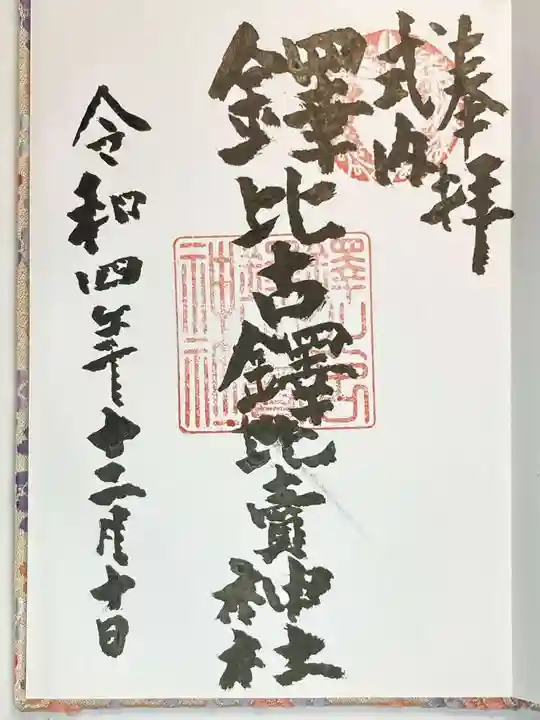 奉拝
式内
鐸比古鐸比賣神社
令和四年十二月十日